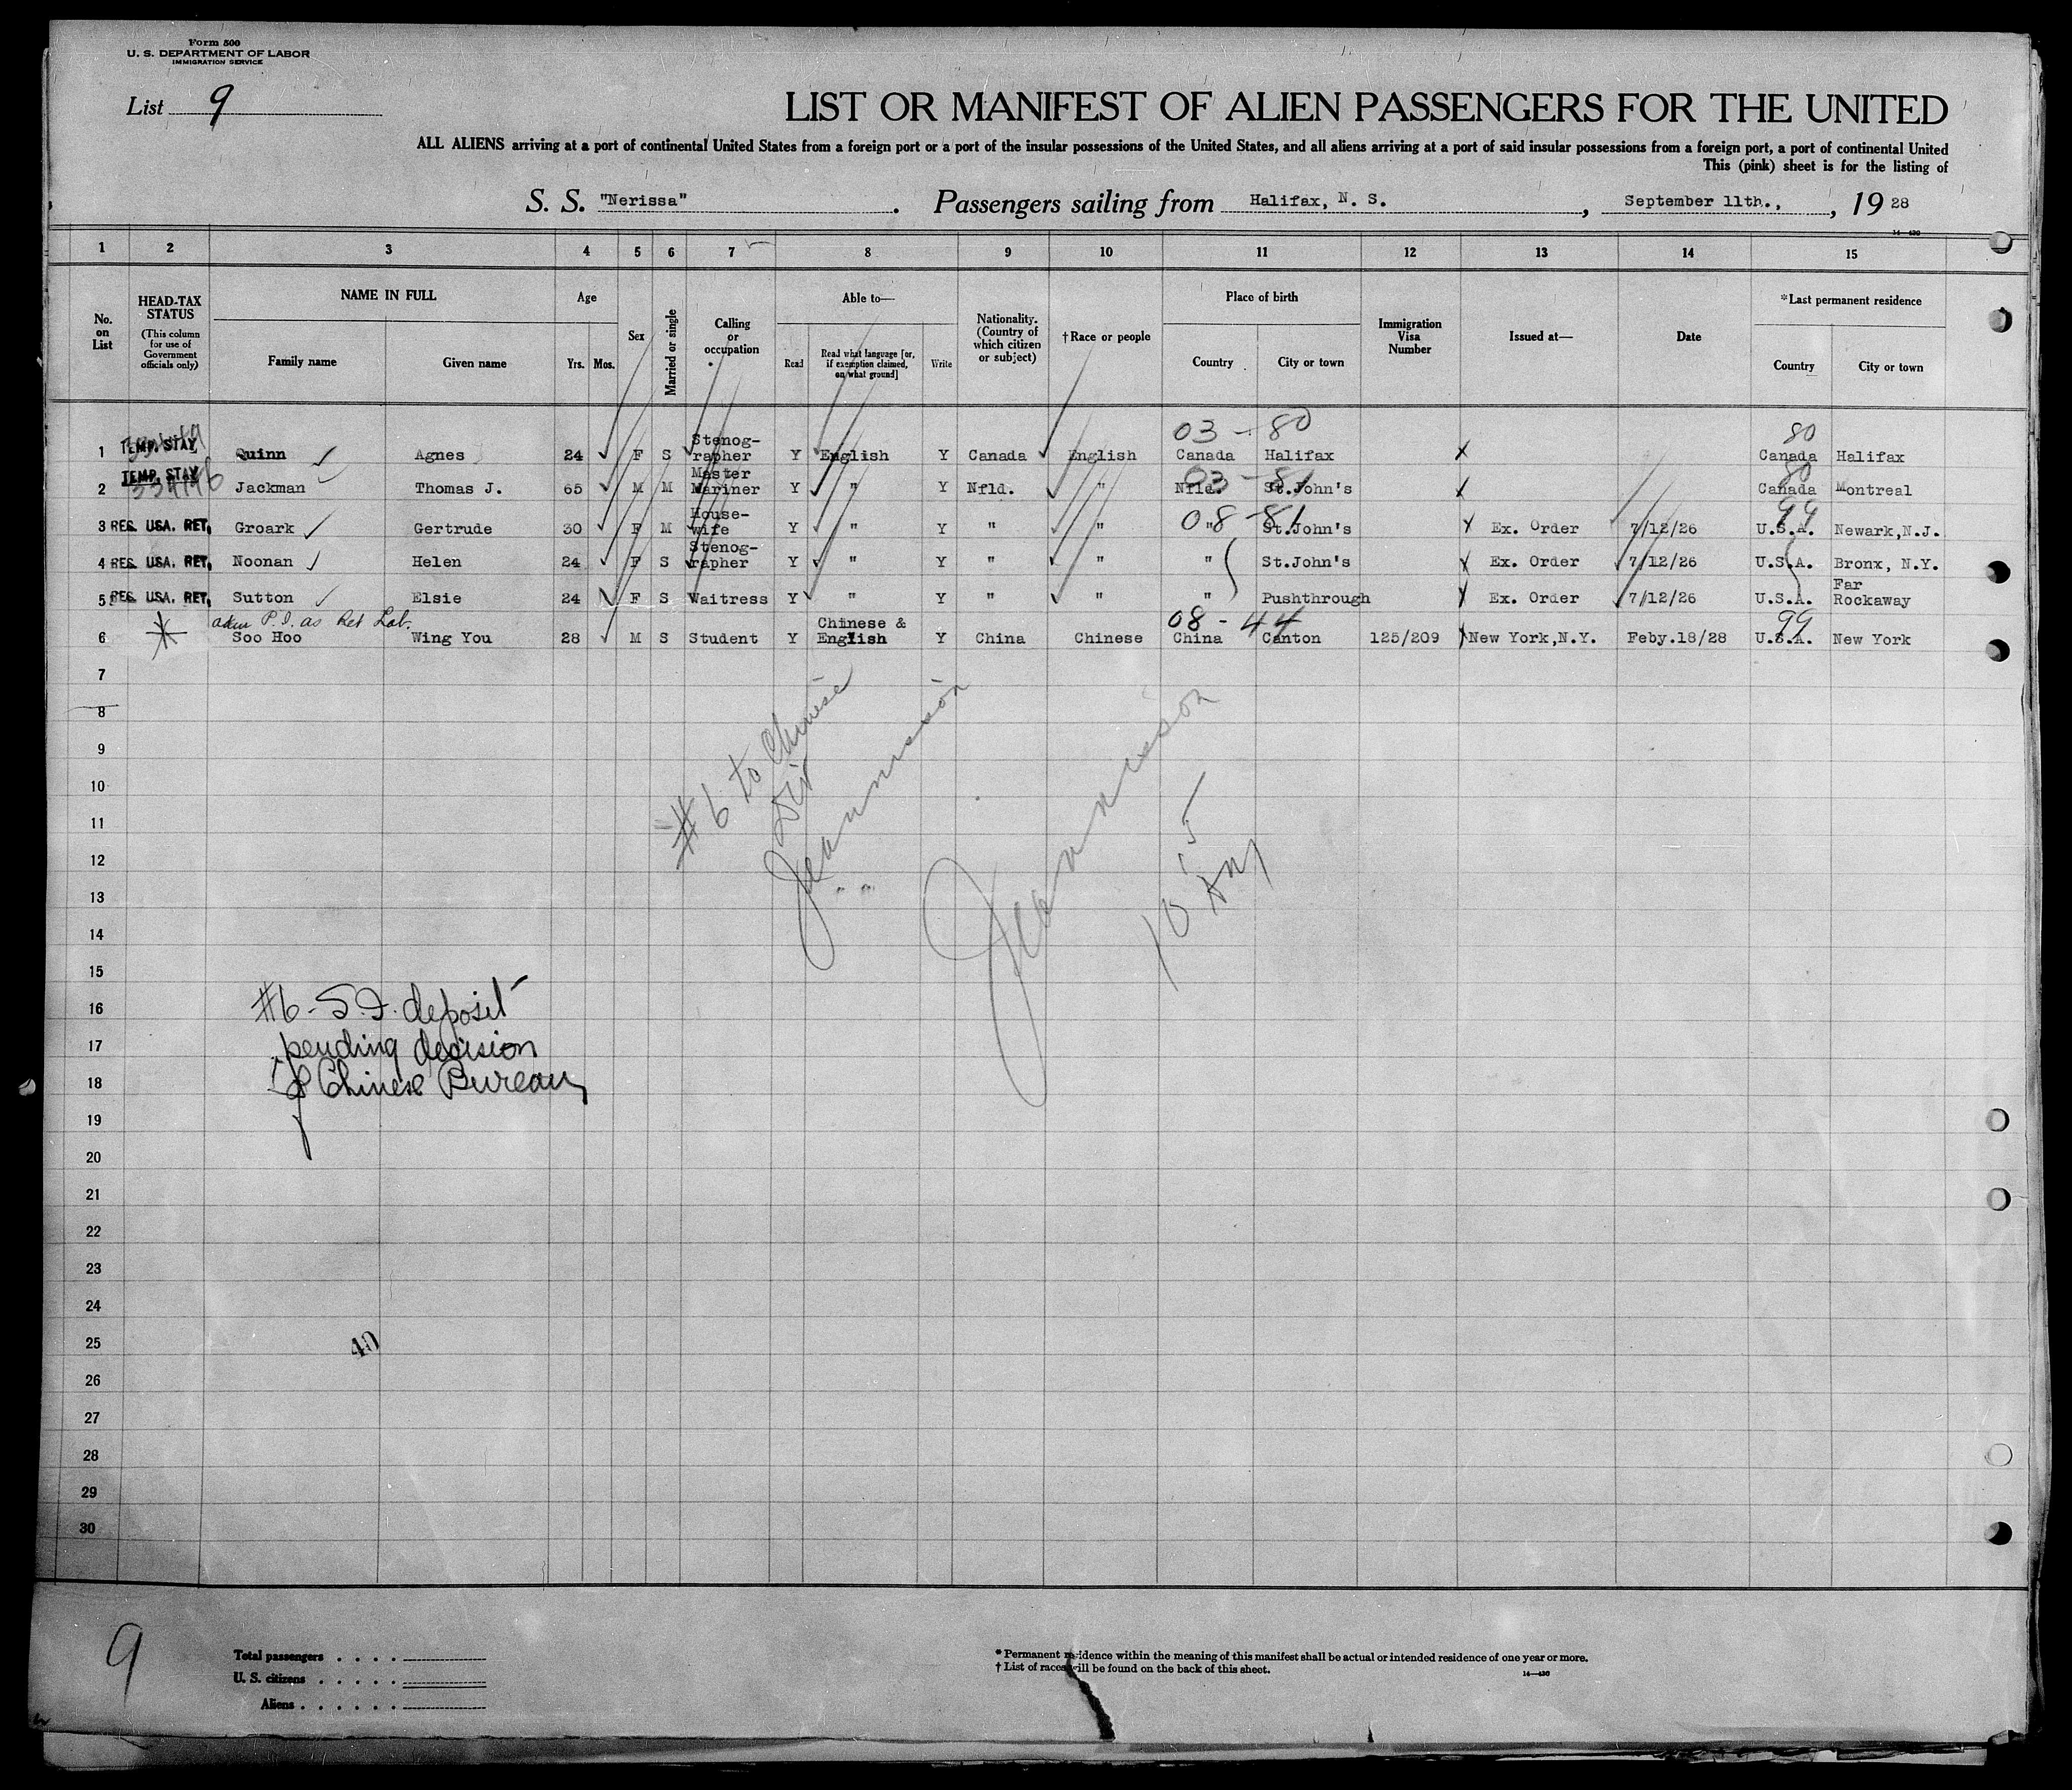 Form 500
U. S. DEPARTMENT OF LABOR
IMMIGRATION SERVICE
List 9
LIST OR MANIFEST OF ALIEN PASSENGERS FOR THE UNITED
ALL ALIENS arriving at a port of continental United States from a foreign port or a port of the insular possessions of the United States, and all aliens arriving at a port of said insular possessions from a foreign port, a port of continental United
This (pink) sheet is for the listing of
S. S. "Nerissa". Passengers sailing from Halifax, N. S., September 11th., , 19 28
14—430
1 2 3 4 5 6 7 8 9 10 11 12 13 14 15
No. on List
HEAD-TAX STATUS
(This column for use of Government officials only)
NAME IN FULL
Family name Given name
Age
Yrs. Mos.
Sex
Married or single
Calling or occupation
Able to—
Read Read what language [or, if exemption claimed, on what ground] Write
Nationality. (Country of which citizen or subject)
†Race or people
Place of birth
Country City or town
Immigration Visa Number
Issued at—
Date
*Last permanent residence
Country City or town
03 - 80 80
1 TEMP. STAY Quinn Agnes 24 F S Stenog-rapher Y English Y Canada English Canada Halifax Canada Halifax
03 - 81 80
2 TEMP. STAY Jackman Thomas J. 65 M M Master Mariner Y " Y Nfld. " Nfld. St.John's Canada Montreal
08 - 81 99
3 REG. USA. RET. Groark Gertrude 30 F M House-wife Y " Y " " " St.John's Ex. Order 7/12/26 U.S.A. Newark,N.J.
4 REG. USA. RET. Noonan Helen 24 F S Stenog-rapher Y " Y " " " St.John's Ex. Order 7/12/26 U.S.A. Bronx, N.Y.
5 REG. USA. RET. Sutton Elsie 24 F S Waitress Y " Y " " " Pushthrough Ex. Order 7/12/26 U.S.A. Far Rockaway
P.I. as Ret Lab.
08 - 44 99
6 Soo Hoo Wing You 28 M S Student Y Chinese & English Y China Chinese China Canton 125/209 New York,N.Y. Feby.18/28 U.S.A. New York
7
8
9
10
11
12
13
14
15
16
17
18
19
20
21
22
23
24
25
26
27
28
29
30
#6 to Chinese
Div
10 15
AM
#6 - S.I. deposit
pending decision
of Chinese Bureau
40
9
Total passengers . . . .
U. S. citizens . . . . .
Aliens . . . . . .
* Permanent residence within the meaning of this manifest shall be actual or intended residence of one year or more.
† List of races will be found on the back of this sheet.
14—430